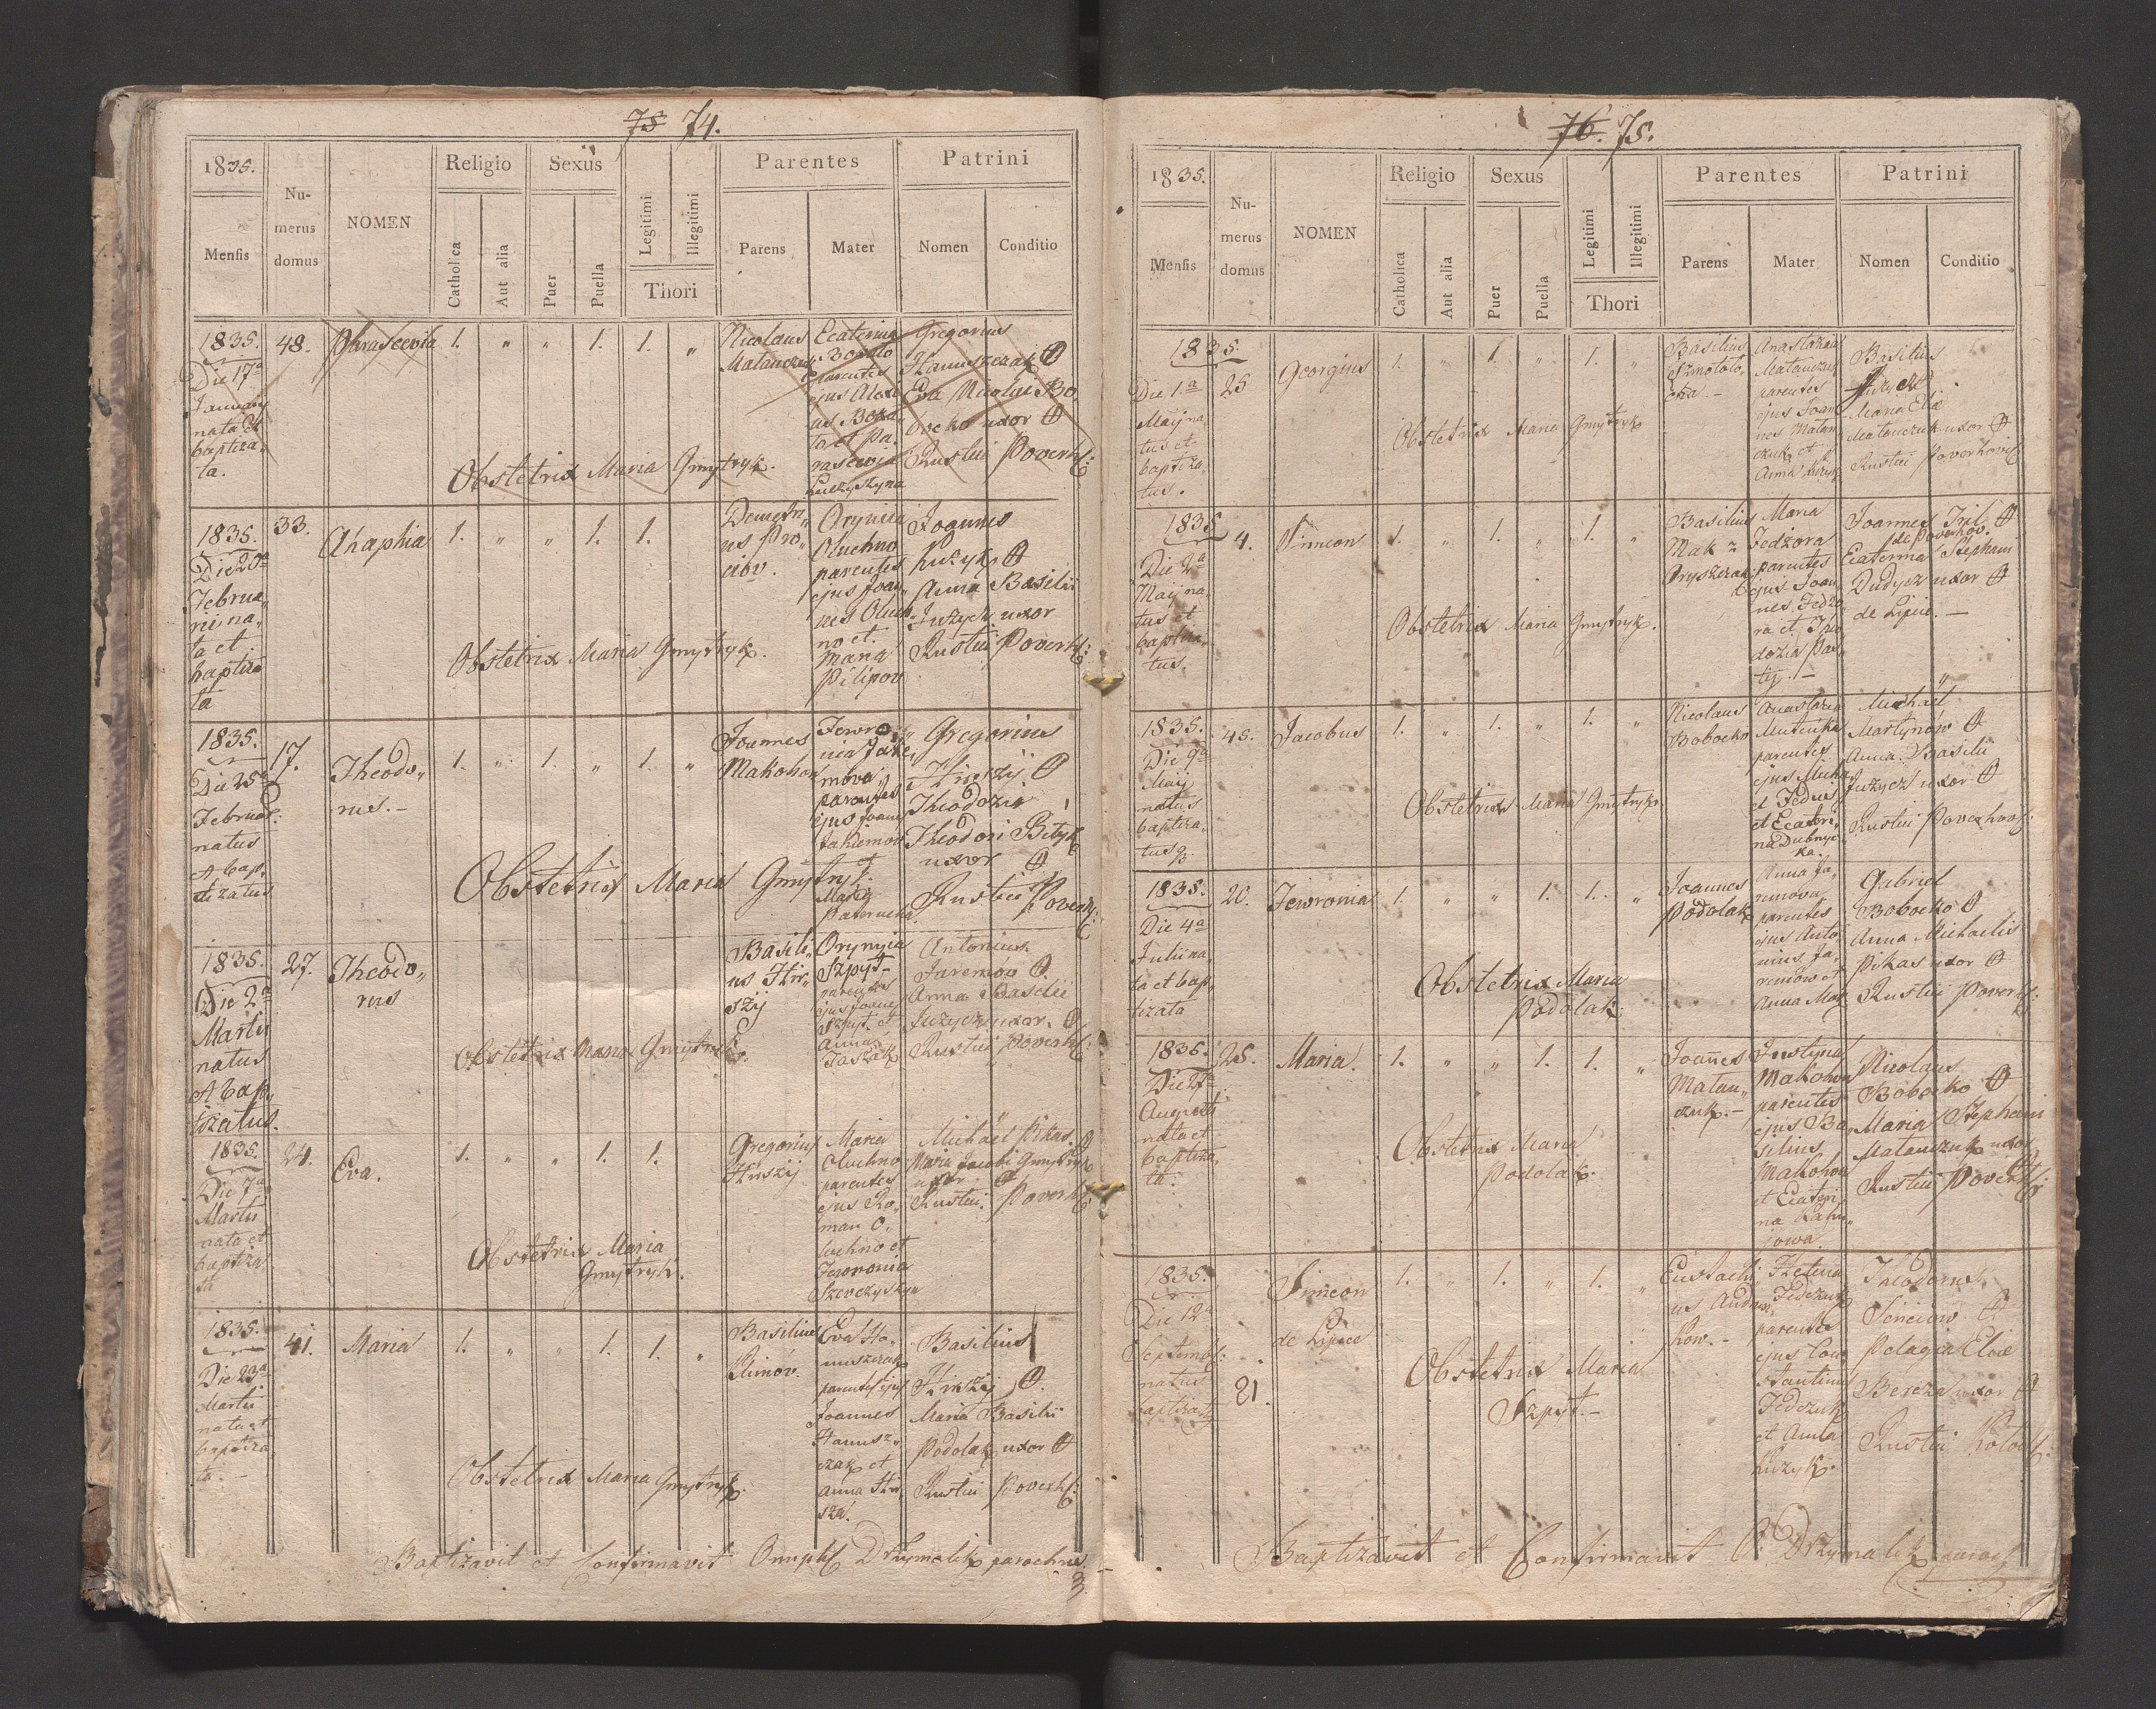 75 74.
1835.
Mensis
Nu-
merus
domus
NOMEN
Religio
Catholica
Aut alia
Sexus
Puer
Puella
Legitimi
Illegitimi
Thori
Parentes
Parens
Mater
Patrini
Nomen
Conditio
1835.
Die 17a
January
nata et
baptiza-
ta.
48.
Phrascevia
1. " " 1. 1. "
Nicolaus
Matanczuk
Ecaterina
parentes
ejus Alexi
et Pa-
rascevia
Gregorius
Hanuszczak
Eva Nicolai Bo
bocko uxor
Rustici Poverh:
Obstetrix Maria Gmytryk.
1835.
Die 20a
Februa-
rii na-
ta et
baptiza
ta
33.
Ahaphia
1. " " 1. 1.
Demetri
us Pro
ciov.
Orynia
Oluchno
parentes
ejus Joan-
nes Oluch-
no et.
Maria
Pilipov
Joannes
Anna Basilii
Juzycz uxor
Rustici Poverh:
Obstetrix Maria Gmytryk.
1835.
Die 25a
Februar:
natus
et bap-
tizatus
17.
Theodo-
rus.-
1. " 1. " 1. "
Joannes
Makohon
Fewro-
nia Jake
mova
parentes
ejus Joan
Jakiemow
et
Maria
Gregorius
Hirszij
Theodozia
Theodori Bilyk
uxor
Rustici Poverh:
Obstetrix Maria Gmytryk.
1835.
Die 2a
Martii
natus
et bap-
tizatus.
27.
Theodo-
rus
Basili-
us Hir-
szij
Orynyia
Szpyt-
parentes
ejus Joannes
Szpyt. et
Anna
Antonius
Jaremow
Anna Basilii
Juzycz uxor.
Rustici Poverh:
Obstetrix Maria Gmytryk.
1835.
Die 7a
Martii
nata et
baptiza
ta
24.
Eva.
1. " " 1. 1.
Gregorius
Hirszij
Maria
Oluchno
parentes
ejus Ro-
man O-
luchno et
Fewronia
Michael Pikas.
Maria Jacobi Gmytryk
uxor
Rustici. Poverh:
Obstetrix Maria
Gmytryk.
1835.
Die 23a
Martii
nata et
baptiza
ta.-
41.
Maria
1. " " 1. 1. "
Basilius
Klimóv.
Eva Ha-
nuszczak
parentes ejus
Joannes
Hanusz-
czak et
Anna Hir-
sza.
Basilius
Hirszij
Maria Basilii
Podolak uxor
Rustici Poverh:
Obstetrix Maria Gmytryk.
Baptizavit et Confirmavit Onuph: Drzymalik parochus
76. 75.
1835.
Mensis
Nu-
merus
domus
NOMEN
Religio
Catholica
Aut alia
Sexus
Puer
Puella
Legitimi
Illegitimi
Thori
Parentes
Parens
Mater
Patrini
Nomen
Conditio
1835.
Die 1.a
Maij na
tus et
baptiza-
tus.
25
Georgius
1. " 1. " 1. "
Basilius
Anastazia
Matanczuk
parentes
ejus Joan
nes Matan
czuk et
Anna
Basilius
Maria Eliae
Matanczuk uxor
Rustici Poverhovis:
Obstetrix Maria Gmytryk
1835
Die 2a
Maij na-
tus et
baptiza-
tus.
4.
Simeon
1. " 1. " 1. "
Basilius
Mak
Oryszczak
Maria
Fedzora
parentes
ejus Joan
nes Fedzo
ra et Theo
dozia
Joannes
de Poverhov.
Ecaterina Stephani
Dudycz uxor
de Lipie. -
Obstetrix Maria Gmytryk.
1835.
Die 9a
Maij
natus
baptiza-
tus.
45.
Jacobus
1. " 1. " 1. "
Nicolaus
Bobocko
Anastazia
parentes
ejus Micha
el Fedus
et Ecateri-
na Dubnyc-
ka.
Michael
Martynów
Anna Basilii
Juzycz uxor
Rustici Poverhovs:
Obstetrix Maria Gmytryk.
1835.
Die 4a
Julii na
ta et bap-
tizata
20.
Fewronia
1. " " 1. 1. "
Joannes
Podolak
Anna Ja-
remova
parentes
ejus Anto-
nius Ja-
remow et
Anna Mak
Gabriel
Bobocko
Anna Michaelis
Pikas uxor
Rustici Poverh:
Obstetrix Maria
Podolak.
1835.
Die 27a
Augusti
nata et
baptiza-
ta.
25.
Maria.
1. " " 1. 1. "
Joannes
Matan-
czuk.-
Justyna
Makohon
parentes
ejus Ba-
silius
Makohon
et Ecateri-
na
Nicolaus
Bobocko
Maria Stephani
Matanczuk uxor
Rustici Poverh:
Obstetrix Maria
Podolak.
1835.
Die 12a
Septemb:
natus
baptizat:
21.
Simeon
de Lipie
1. " 1. " 1. "
Eustachi
us Andru-
kow.-
Fedczuk
parentes
ejus Con-
stantinus
Fedczuk
et Anna
Luzyk.
Theodorus
Senciow
Pelagia Eliae
Bereza uxor
Rustici
Obstetrix Maria
Szpyt.-
Baptizavit et Confirmavit O. Drzymalik paroch: